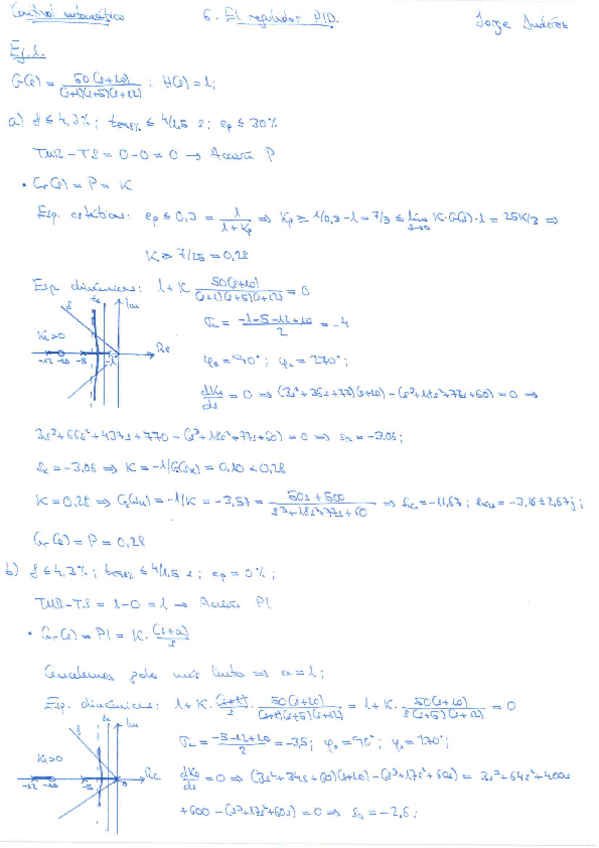 Control automático 5. El regulador PID. Jorge
Ej. 1.
G(s) = 50(s+10)/((s+1)(s+5)(s+12)) ; H(s) = 1;
a) δ ≤ 4,3% ; ≤ 4/1,5 s ; ep ≤ 30%
TMR - TS = 0 - 0 = 0 → Acción P
• Gr(s) = P = K
Esp. estáticas: ep ≤ 0,3 = 1/(1+Kp) ⇒ Kp ≥ 1/0,3 - 1 = 7/3 ≤ lím s→0 K·G(s)·1 = 25K/3 ⇒
K ≥ 7/25 = 0,28
Esp. dinámicas: 1 + K · 50(s+10)/((s+1)(s+5)(s+12)) = 0
δ te Im
σa = (-1-5-12+10)/2 = -4
K>0
Re
-12 -10 -5 -1
φ0 = 90° ; φ1 = 270° ;
dK/ds = 0 ⇒ (3s²+36s+77)(s+10) - (s³+18s²+77s+60) = 0 ⇒
3s³+66s²+437s+770 - (s³+18s²+77s+60) = 0 ⇒ = -3,06 ;
= -3,06 ⇒ K = -1/G(sk) = 0,10 < 0,28
K = 0,28 ⇒ = -1/K = -3,57 = (50s+500)/(s³+18s²+77s+60) ⇒ = -11,67 ; = -3,16 ± 2,67j ;
Gr(s) = P = 0,28
b) δ ≤ 4,3% ; ≤ 4/1,5 s ; ep = 0% ;
TMR - TS = 1 - 0 = 1 → Acción PI
• Gr(s) = PI = K · (s+a)/s
Cancelamos polo más lento ⇒ a = 1 ;
Esp. dinámicas: 1 + K · (s+1)/s · 50(s+10)/((s+1)(s+5)(s+12)) = 1 + K · 50(s+10)/(s(s+5)(s+12)) = 0
δ te Im
σa = (-5-12+10)/2 = -3,5 ; φ0 = 90° ; φ1 = 270° ;
K>0
Re
-12 -10 -5 0
dK/ds = 0 ⇒ (3s²+34s+60)(s+10) - (s³+17s²+60s) = 3s³+64s²+400s
+600 - (s³+17s²+60s) = 0 ⇒ = -2,6 ;